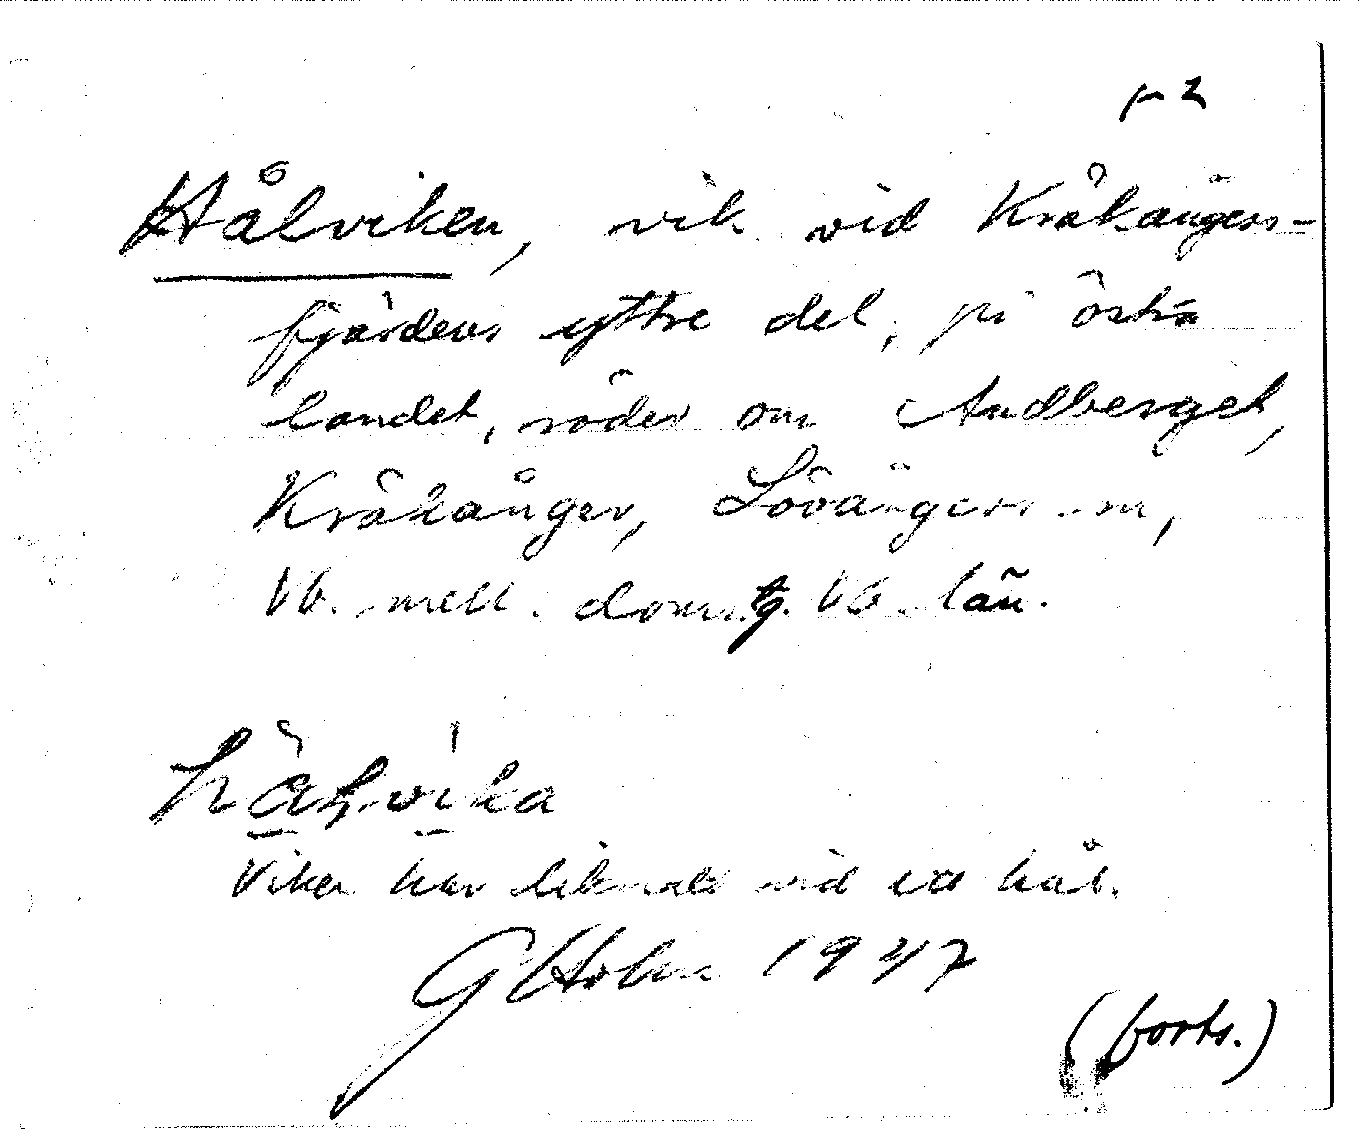 Hålviken, vik vid Kråkångers-
fjärdens yttre del, på östra
landet, söder om Audberget,
Kråkånger, Lövångers sn,
Vb. mell. doms.g. Vb. län.
hålvika
Viken har liknats vid ett hål.
G Holm 1947
(forts.)